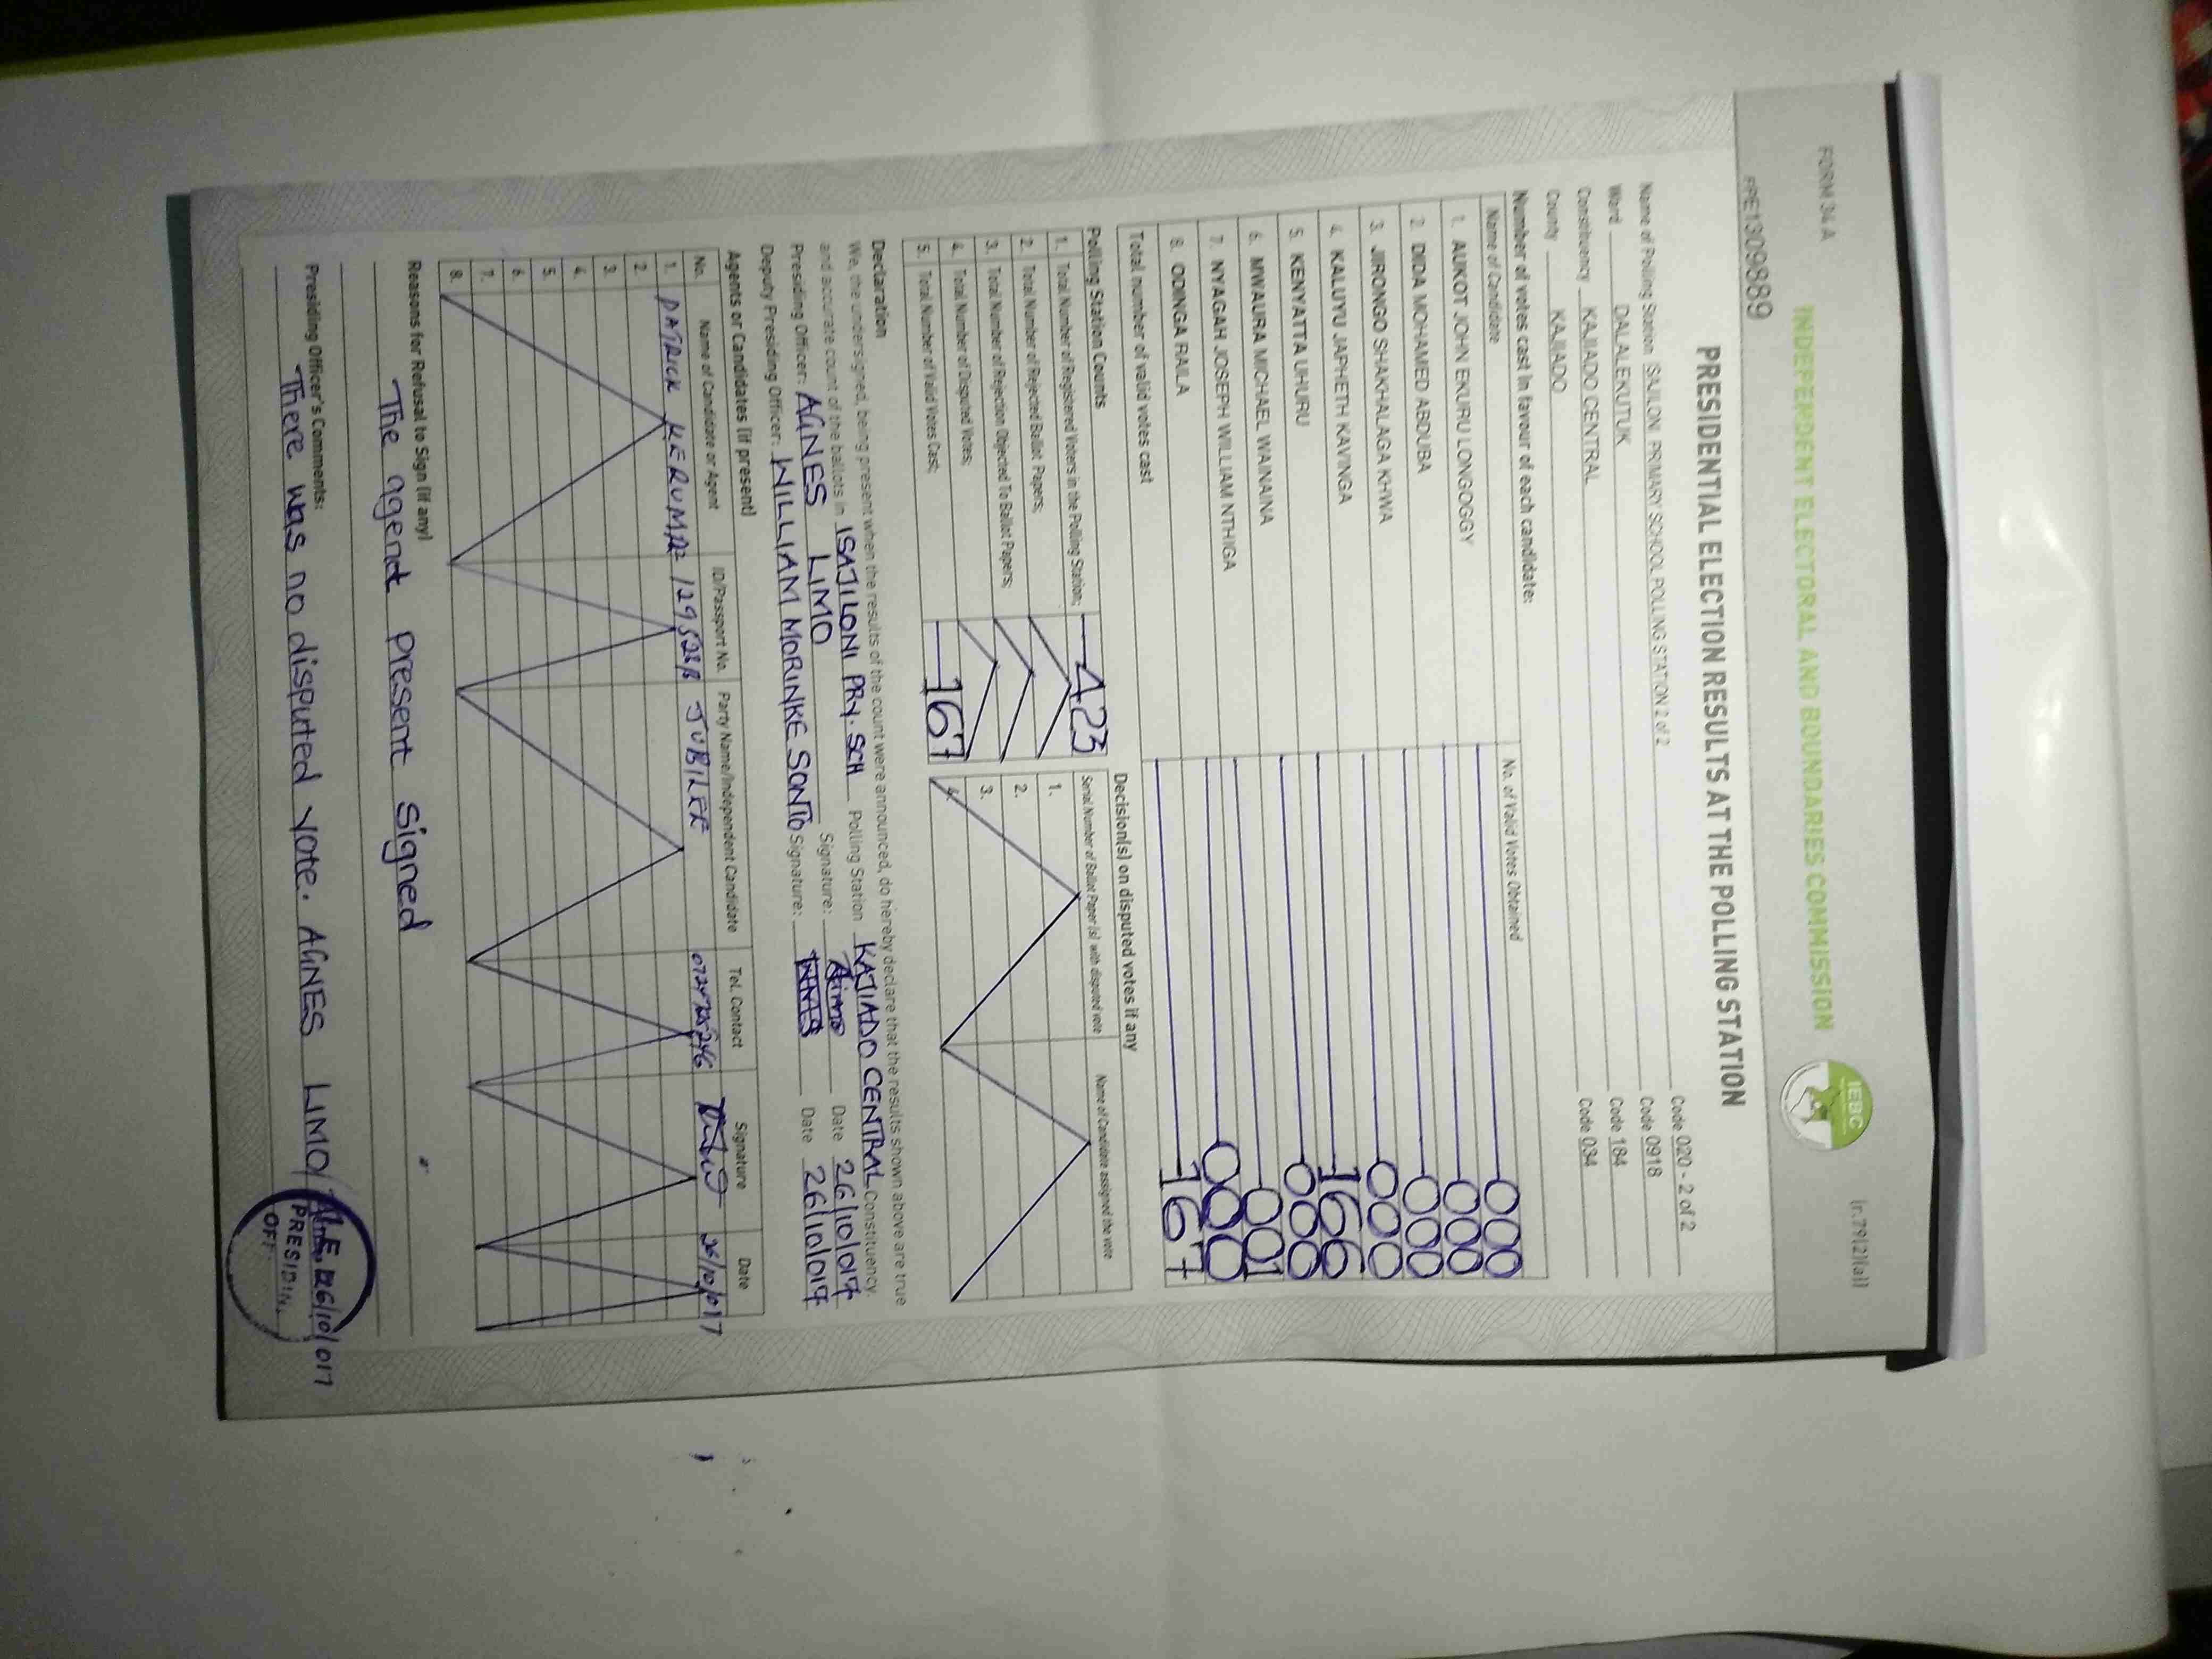 FORM 34 A
(r.79(2)(a))
INDEPENDENT ELECTORAL AND BOUNDARIES COMMISSION
IEBC
PRE1309889
PRESIDENTIAL ELECTION RESULTS AT THE POLLING STATION
Name of Polling Station ISAJILONI PRIMARY SCHOOL POLLING STATION 2 of 2 Code 020 - 2 of 2
Ward DALALEKUTUK Code 0918
Constituency KAJIADO CENTRAL Code 184
County KAJIADO Code 034
Number of votes cast in favour of each candidate:
Name of Candidate No. of Valid Votes Obtained
1. AUKOT JOHN EKURU LONGOGGY 000
2. DIDA MOHAMED ABDUBA 000
3. JIRONGO SHAKHALAGA KHWA 000
4. KALUYU JAPHETH KAVINGA 000
5. KENYATTA UHURU 166
6. MWAURA MICHAEL WAINAINA 000
7. NYAGAH JOSEPH WILLIAM NTHIGA 001
8. ODINGA RAILA 000
Total number of valid votes cast 167
Polling Station Counts
1. Total Number of Registered Voters in the Polling Station; 423
2. Total Number of Rejected Ballot Papers;
3. Total Number of Rejection Objected To Ballot Papers;
4. Total Number of Disputed Votes;
5. Total Number of Valid Votes Cast; 167
Decision(s) on disputed votes if any
Serial Number of Ballot Paper (s) with disputed vote Name of Candidate assigned the vote
1.
2.
3.
4.
Declaration
We, the undersigned, being present when the results of the count were announced, do hereby declare that the results shown above are true
and accurate count of the ballots in ISAJILONI PRY. SCH Polling Station KAJIADO CENTRAL Constituency.
Presiding Officer: AGNES LIMO Signature: Date 26/10/017
Deputy Presiding Officer: WILLIAM MORINKE SONTO Signature: Date 26/10/017
Agents or Candidates (if present)
No. Name of Candidate or Agent ID/Passport No. Party Name/Independent Candidate Tel. Contact Signature Date
1. PATRICK JUBILEE 26/10/017
2.
3.
4.
5.
6.
7.
8.
Reasons for Refusal to Sign (if any)
The agent present signed
Presiding Officer's Comments:
There was no disputed vote. AGNES LIMO 26/10/017